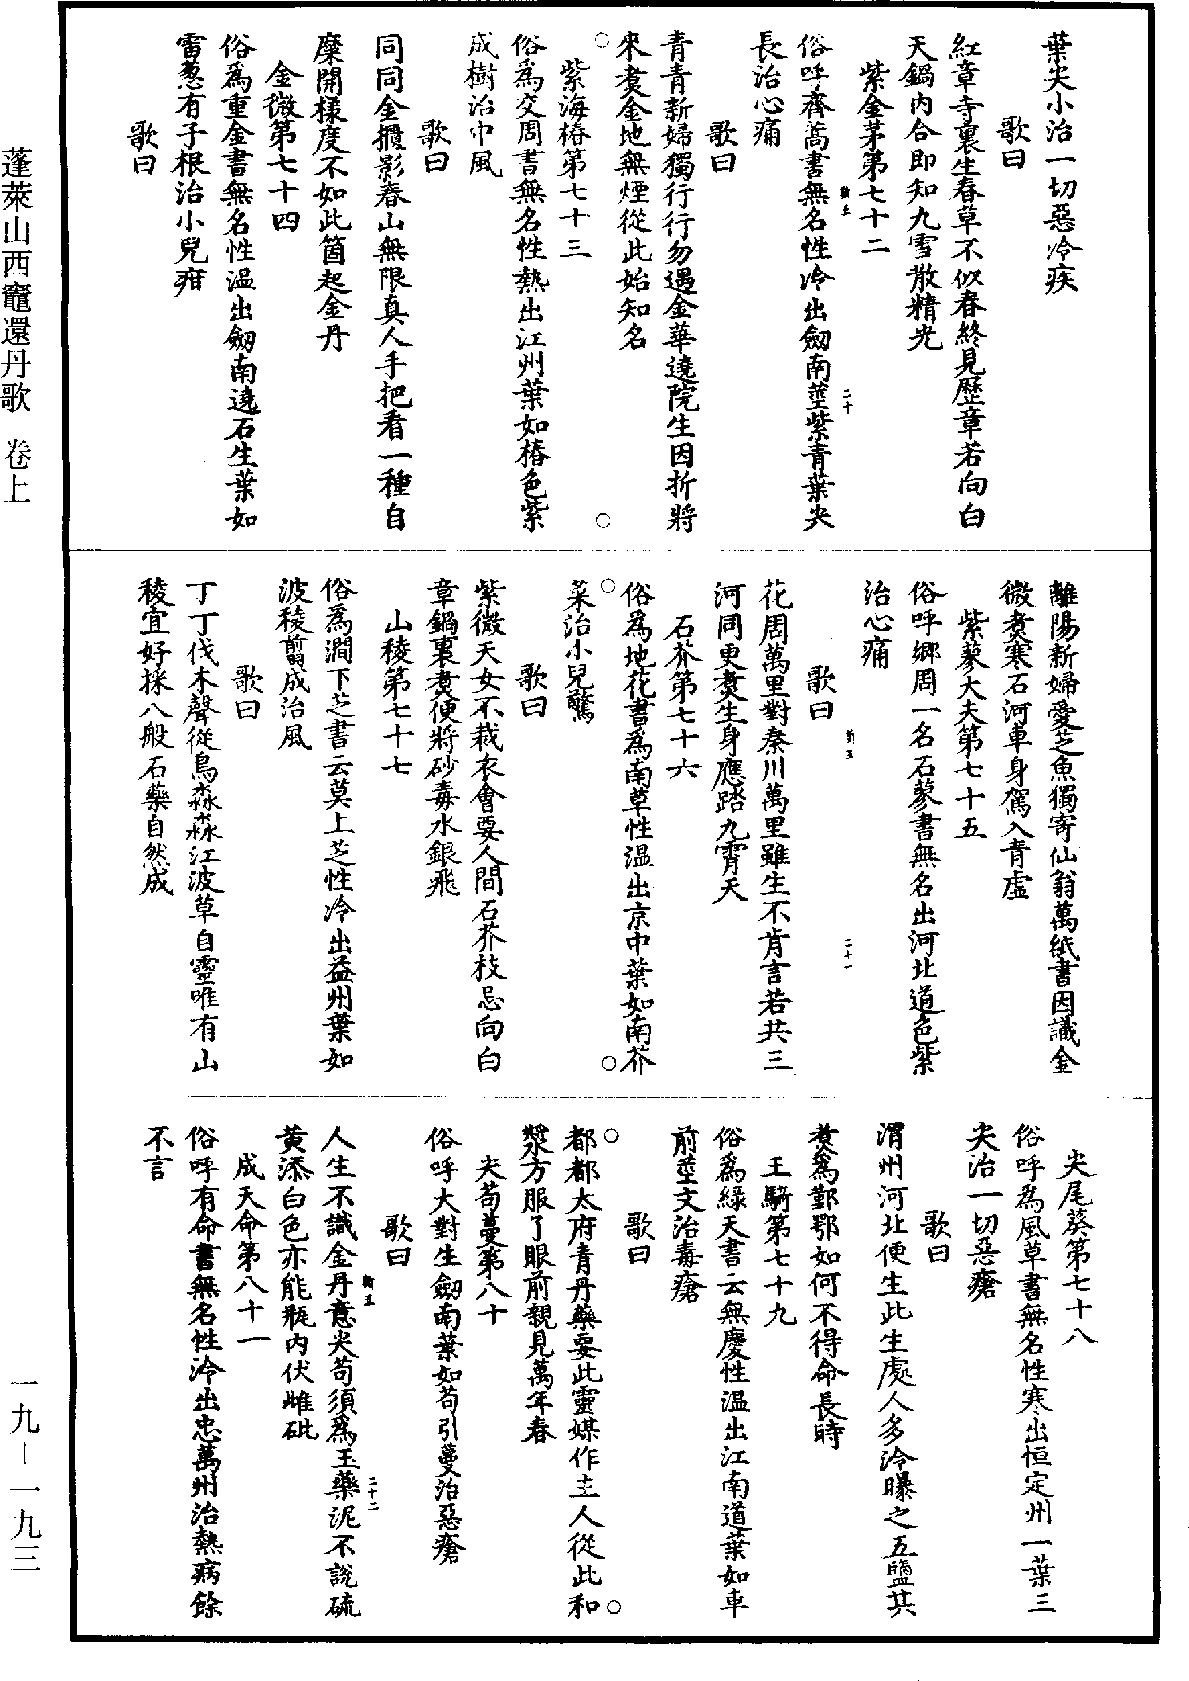 葉尖小治一切惡冷疾
歌曰
紅章寺裏生春草不似春終見歷章若向白
天鍋內合即知九雪散精光
紫金茅第七十二
俗呼齊蒿書無名性冷出劒南莖紫青葉尖
長治心痛
歌曰
青青新婦獨行行勿遇金華遶院生因折將
來煑金地無煙從此始知名
紫海椿第七十三
俗爲交周書無名性熱出江州葉如椿色紫
成樹治中風
歌曰
同同金攪影春山無限真人手把看一種自
糜開樣度不如此箇起金丹
金微第七十四
俗爲重金書無名性温出劒南遶石生葉如
雷葱有子根治小兒疳
歌曰
離陽新婦愛芝魚獨寄仙翁萬紙書因識金
微煑寒石河車身駕入青虛
紫蓼大夫第七十五
俗呼鄉周一名石蓼書無名出河北道色紫
治心痛
歌曰
花周萬里對秦川萬里雖生不肯言若共三
河同更煑生身應踏九霄天
石芥第七十六
俗爲地花書爲南草性温出京中葉如南芥
菜治小兒驚
歌曰
紫微天女不裁衣會要人間石芥枝忌向白
章鍋裏煑便將砂毒水銀飛
山稜第七十七
俗爲澗下芝書云莫上芝性冷出益州葉如
波稜前成治風
歌曰
丁丁伐木聲從鳥森森江波草自靈唯有山
稜宜好採八般石藥自然成
尖尾葵第七十八
俗呼爲風草書無名性寒出恒定州一葉三
尖治一切惡瘡
歌曰
渭州河北便生此生處人多冷曝之五鹽其
煑爲鄞鄂如何不得命長時
王騎第七十九
俗爲綠天書云無慶性温出江南道葉如車
前莖文治毒瘡
歌曰
都都太府青丹藥要此靈媒作主人從此和
漿方服了眼前親見萬年春
尖苟蔓第八十
俗呼大對生劒南葉如苟引蔓治惡瘡
歌曰
人生不識金丹意尖苟須爲玉藥泥不說硫
黄添白色亦能瓶內伏雌砒
成天命第八十一
俗呼有命書無名性冷出忠萬州治熱病餘
不言
二十
二十一
二十二
蓬萊山西竈還丹歌 卷上
一九—一九三